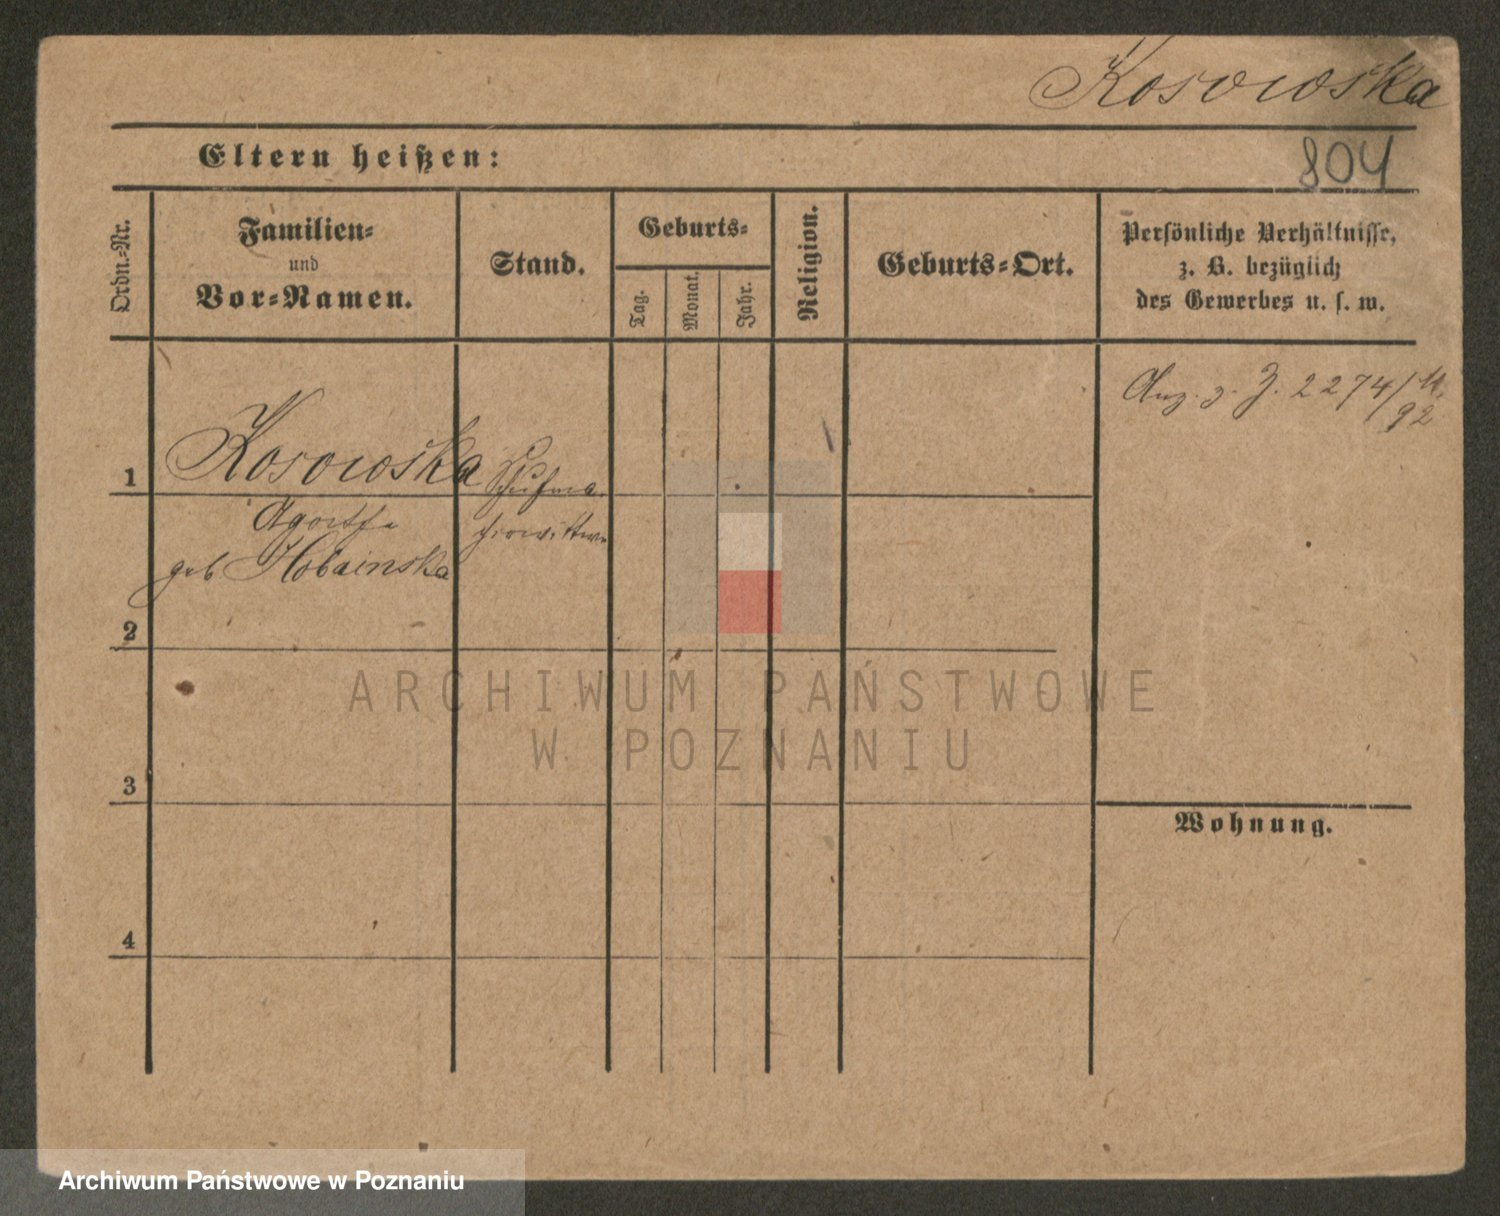 Kosowska
804
Eltern heißen:
Ordn.-Nr.
Familien-
und
Vor-Namen.
Stand.
Geburts-
Tag.
Monat.
Jahr.
Religion.
Geburts-Ort.
Persönliche Verhältnisse,
z. B. bezüglich
des Gewerbes u. s. w.
Anz. z. Z. 2274/
92
1
Kosowska
Schuhma
Agathe
cherwittwe
geb
2
3
4
Wohnung.
ARCHIWUM PAŃSTWOWE
W POZNANIU
Archiwum Państwowe w Poznaniu